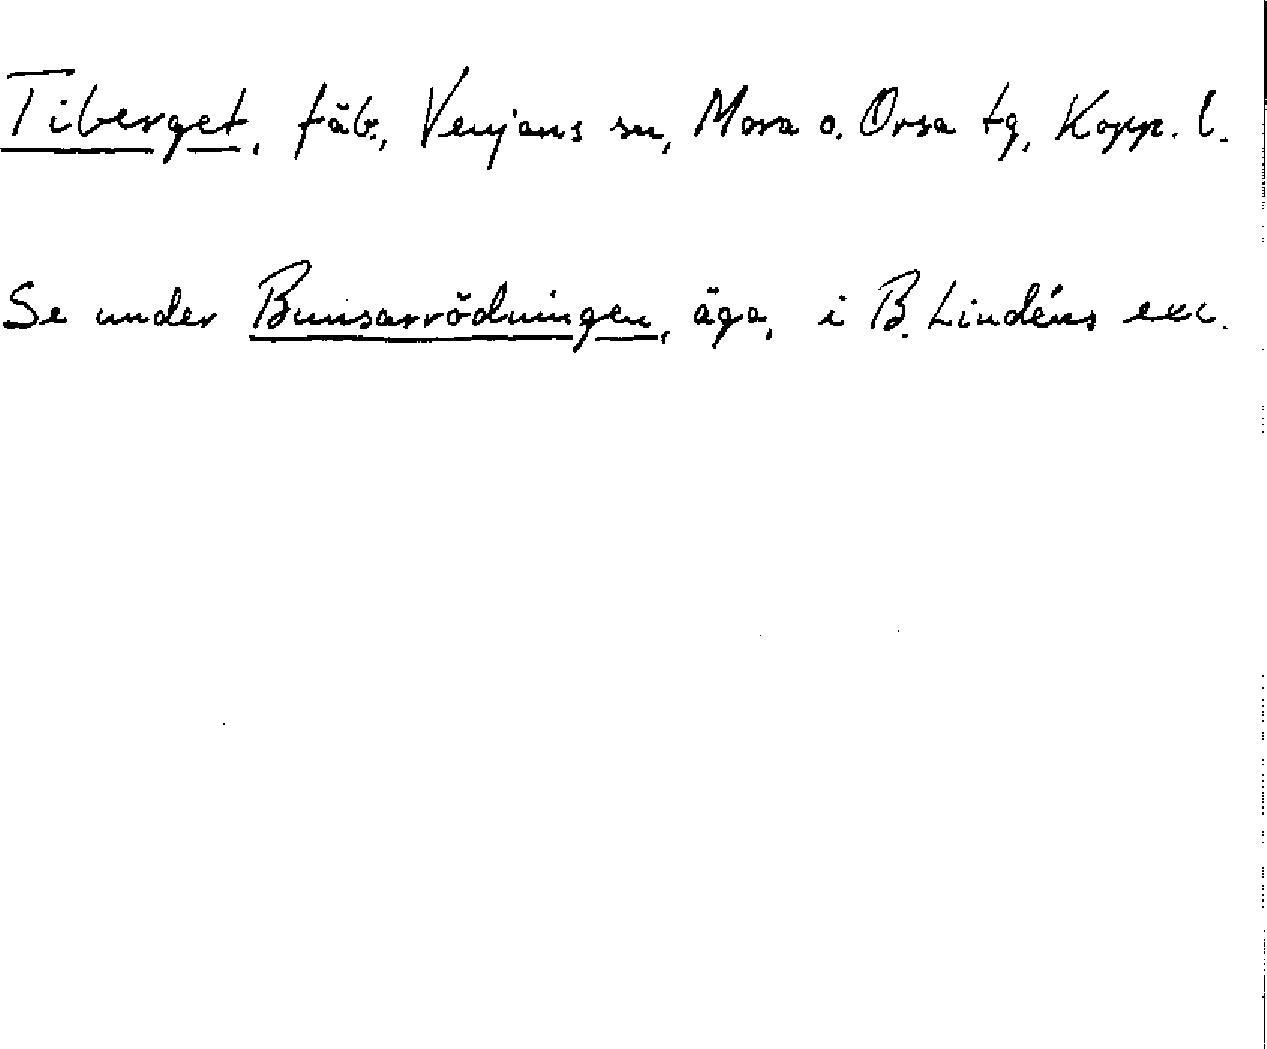 Tiberget, fäb., Venjans sn, Mora o. Orsa tg, Kopp. l.
Se under Bunisarrödningen, äga, i B. Lindéns exc.